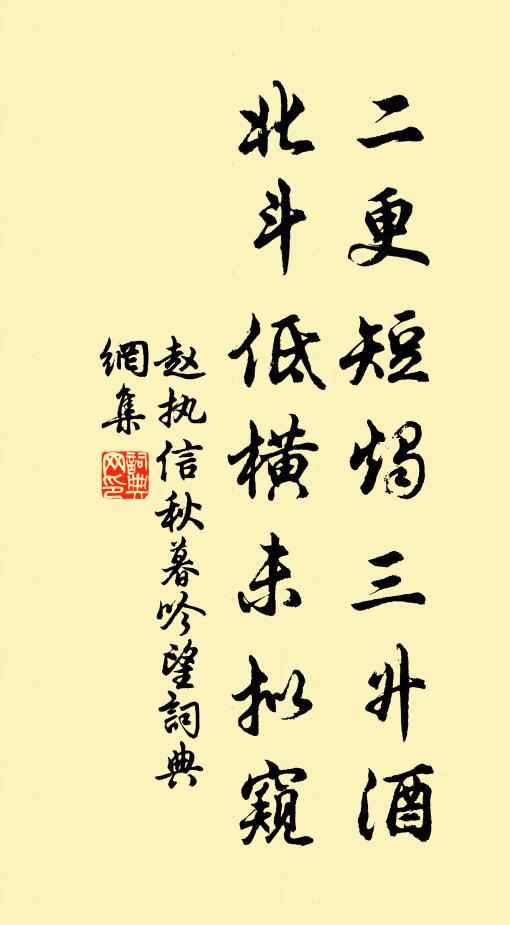 二更短烛三升酒
北斗低横未拟窥
赵执信秋暮吟望词典
網集
詞典網印